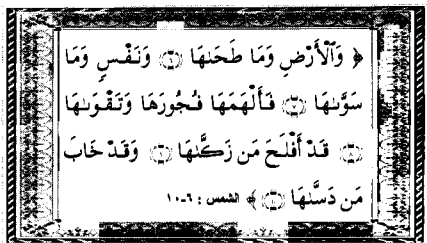 ﴿ وَٱلْأَرْضِ وَمَا طَحَىٰهَا ۝٦ وَنَفْسٍ وَمَا
سَوَّىٰهَا ۝٧ فَأَلْهَمَهَا فُجُورَهَا وَتَقْوَىٰهَا
۝٨ قَدْ أَفْلَحَ مَن زَكَّىٰهَا ۝٩ وَقَدْ خَابَ
مَن دَسَّىٰهَا ۝١٠ ﴾ الشمس : ٦-١٠